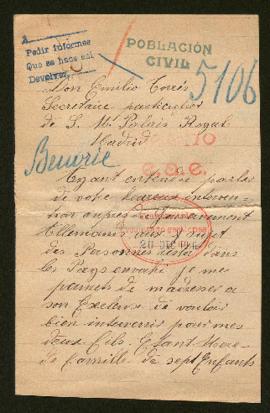 A
Pedir informes
Que se hace así
Devolver
POBLACIÓN
CIVIL
5106
Don Emilio Torrès
Secretaire particulier
de S. M. Palais Royal
Madrid
10
Benorie
Ayant entendu parler
de votre heureux interven
tion auprès du Gouvernement
Allemand au sujet
des Personnes resté dans
les Pays envahi je me
permets de m'adresser a
son Exelence de vouloir
bien intervenir pour mes
deux fils. Etant Mère
de famille de sept Enfants